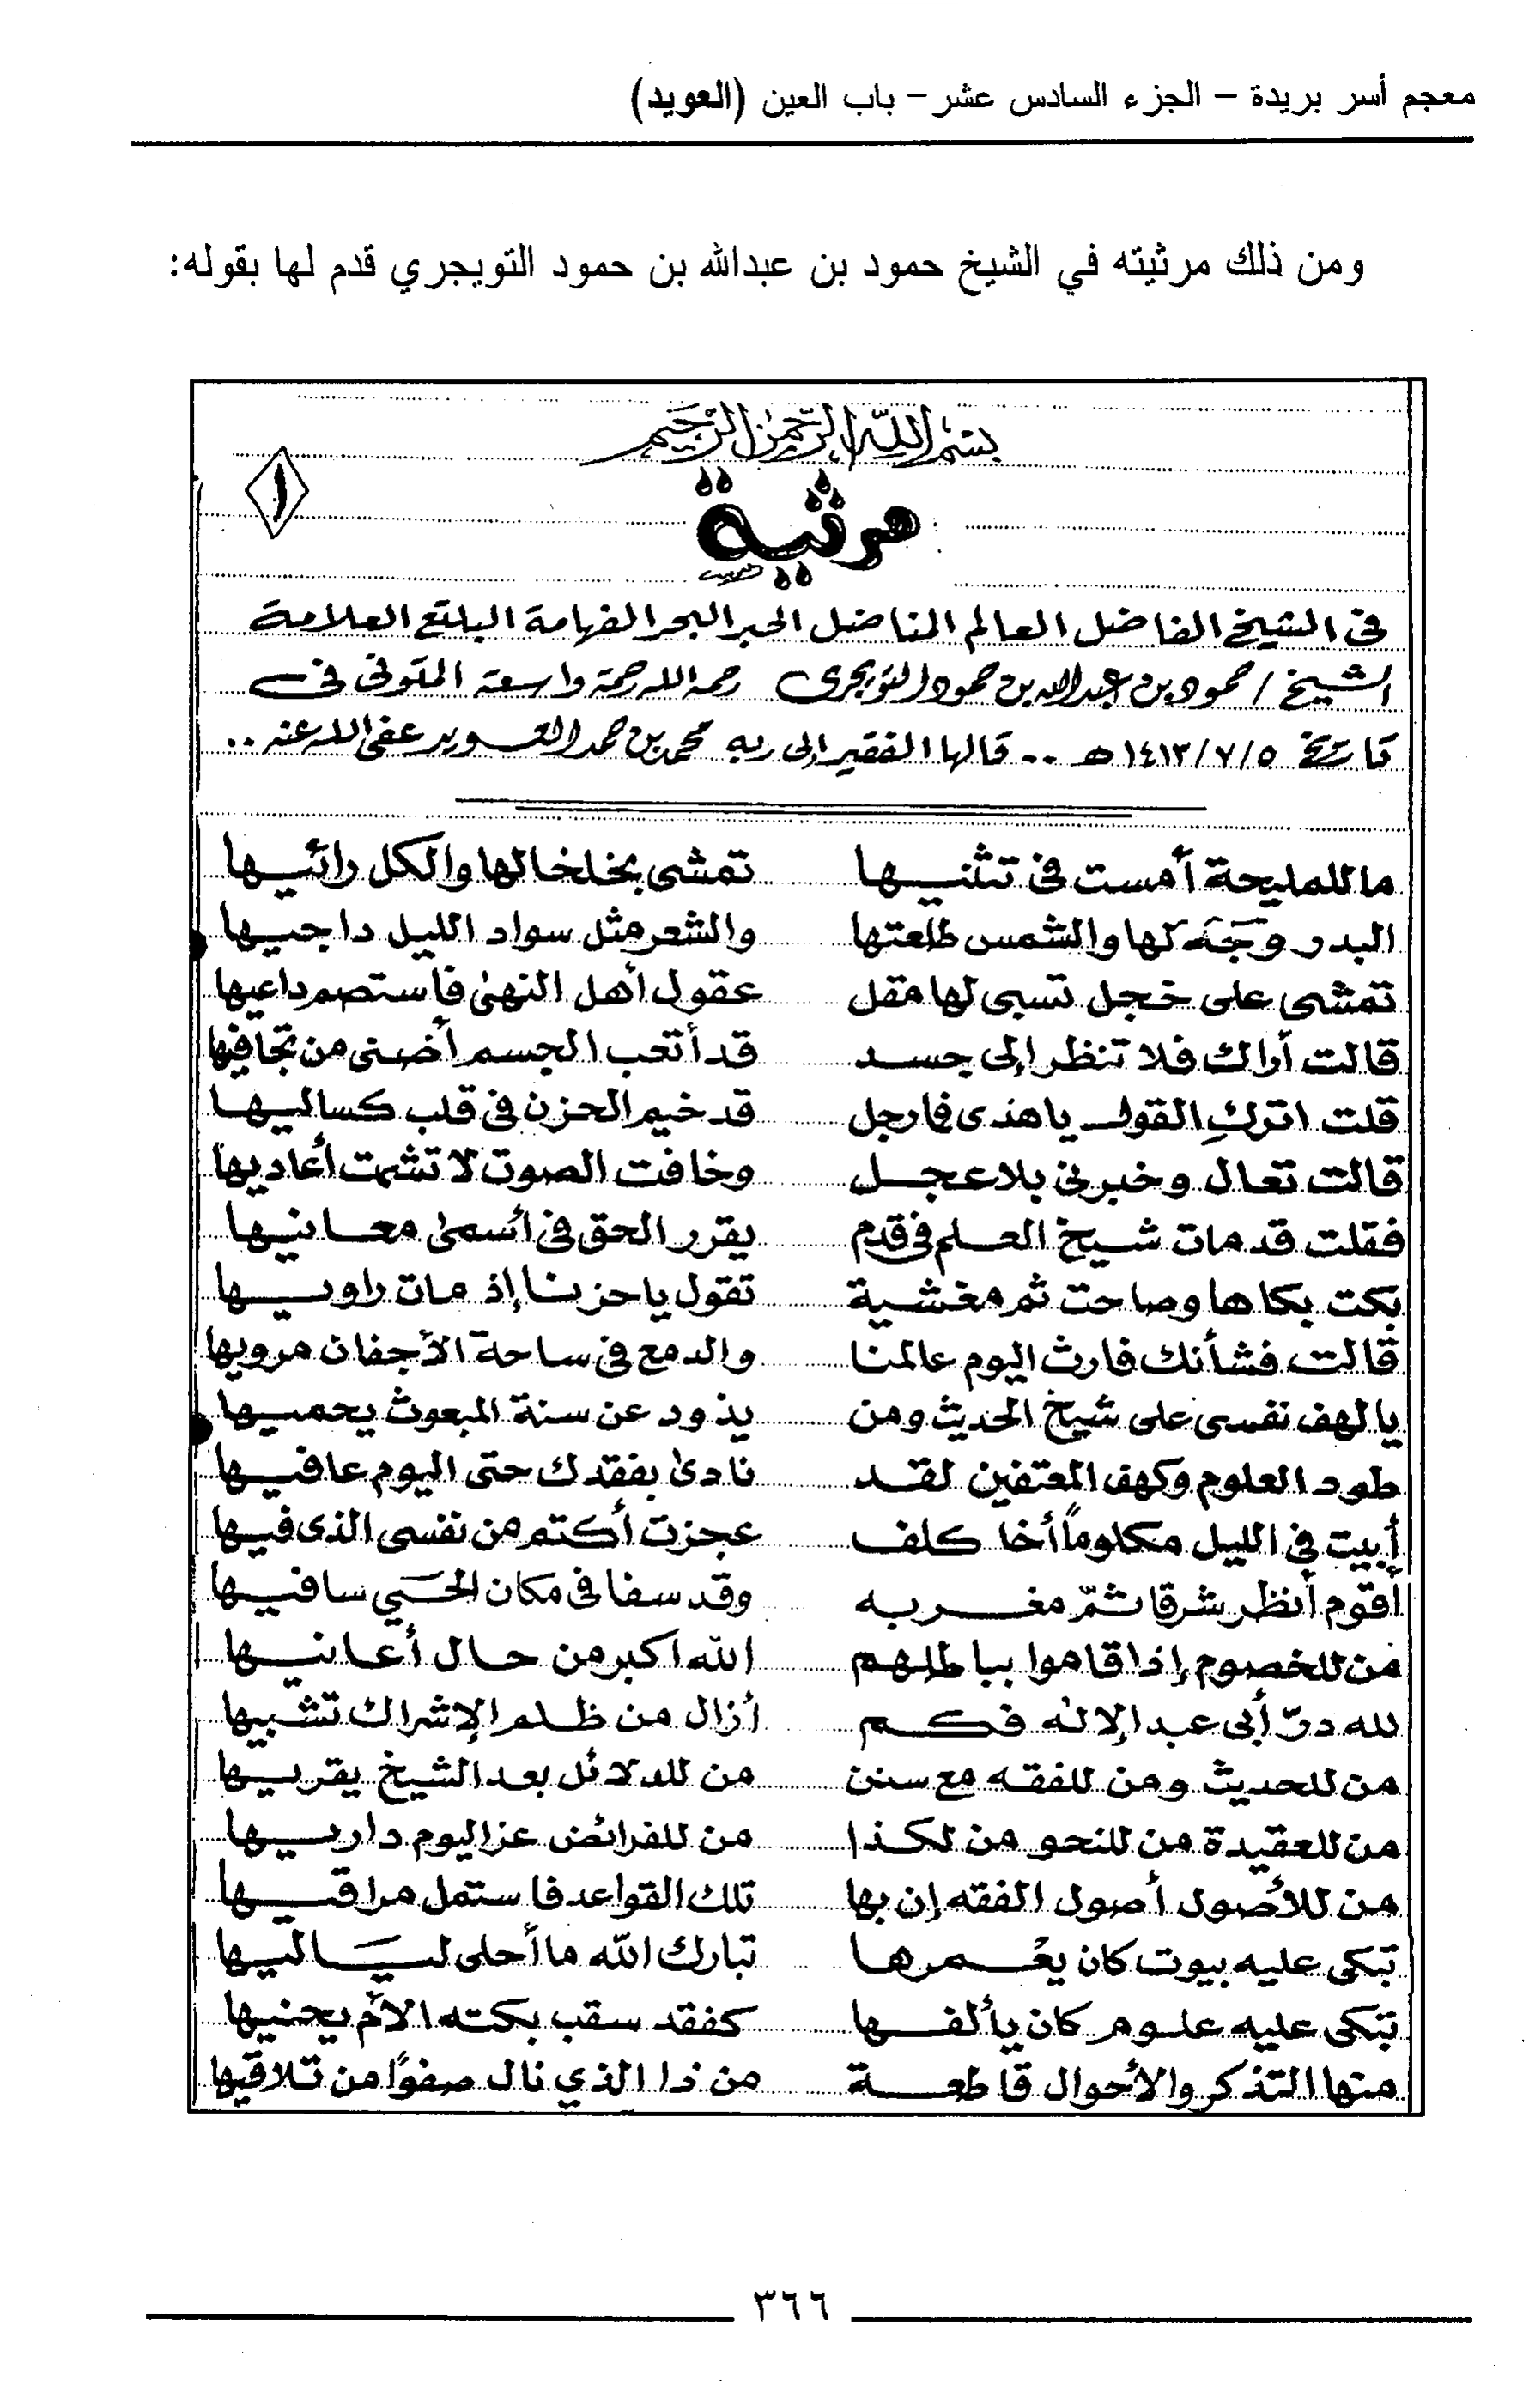 معجم أسر بريدة – الجزء السادس عشر – باب العين (العويد)
ومن ذلك مرثيته في الشيخ حمود بن عبدالله بن حمود التويجري قدم لها بقوله:
بسم الله الرحمن الرحيم
١
مرثية
فى الشيخ الفاضل العالم المناضل الحبر البحر الفهامة البلتع العلامة
الشيخ / حمود بن عبدالله بن حمود التويجرى رحمه الله رحمة واسعة المتوفى فى
تاريخ ١٤١٣/٧/٥هـ .. قالها الفقير إلى ربه محمد بن حمد العويد عفى الله عنه ..
ما للمليحة أمست فى تثنيها تمشى بخلخالها والكل رائيها
البدر وجه لها والشمس طلعتها والشعر مثل سواد الليل داجيها
تمشى على خجل تسبى لها مقل عقول أهل النهىٰ فاستصم داعيها
قالت أراك فلا تنظر إلى جسد قد أتعب الجسم أضنى من تجافيها
قلت اتركِ القول ياهذى فارجل قد خيم الحزن فى قلب كساليها
قالت تعال وخبرنى بلا عجل وخافت الصوت لا تشمت أعاديها
فقلت قد مات شيخ العلم فى قدم يقرر الحق فى أسمىٰ معانيها
بكت بكاها وصاحت ثم مغشية تقول ياحزنا إذ مات راويها
قالت فشأنك فارث اليوم عالمنا والدمع فى ساحة الأجفان مرويها
يا لهف نفسى على شيخ الحديث ومن يذود عن سنة المبعوث يحميها
طود العلوم وكهف المعتفين لقد نادىٰ بفقدك حتى اليوم عافيها
أبيت فى الليل مكلوماً أخا كلف عجزت أكتم من نفسى الذى فيها
أقوم أنظر شرقا ثمّ مغربه وقد سفا فى مكان الحي سافيها
من للخصوم إذا قاموا بباطلهم الله اكبر من حال أعانيها
لله درّ أبى عبد الإلٰه فكم أزال من ظلم الإشراك تشبيها
من للحديث ومن للفقه مع سنن من للدلائل بعد الشيخ يقريها
من للعقيدة من للنحو من لكذا من للفرائض عز اليوم داريها
من للأصول أصول الفقه إن بها تلك القواعد فاستمل مراقيها
تبكى عليه بيوت كان يعْمرها تبارك الله ما أحلى لياليها
تبكى عليه علوم كان يألفها كفقد سقب بكته الأم يحنيها
منها التذكر والأحوال قاطعة من ذا الذي نال صفوًا من تلاقيها
٣٦٦